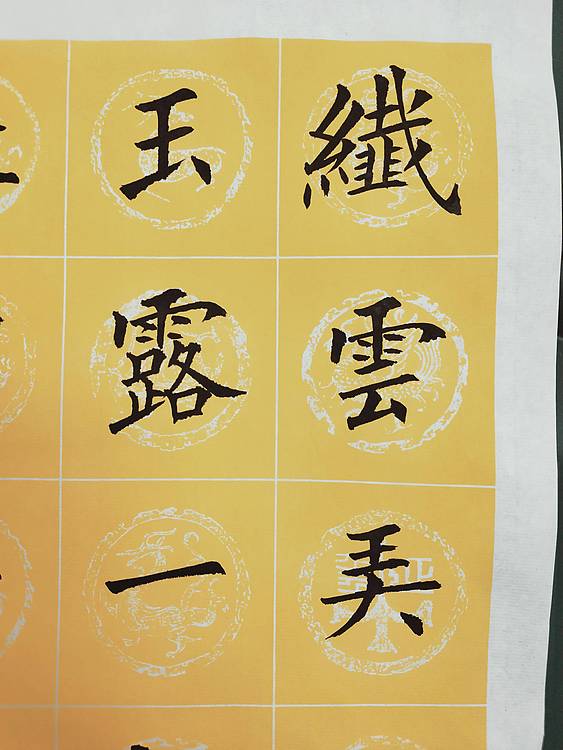 纖雲弄
玉露一